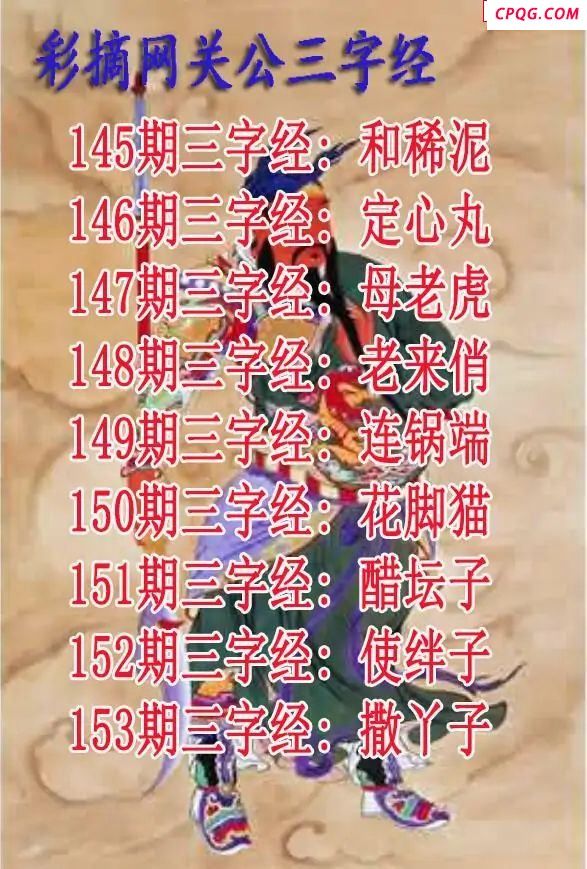 CPQG.COM
彩摘网关公三字经
145期三字经：和稀泥
146期三字经：定心丸
147期三字经：母老虎
148期三字经：老来俏
149期三字经：连锅端
150期三字经：花脚猫
151期三字经：醋坛子
152期三字经：使绊子
153期三字经：撒丫子